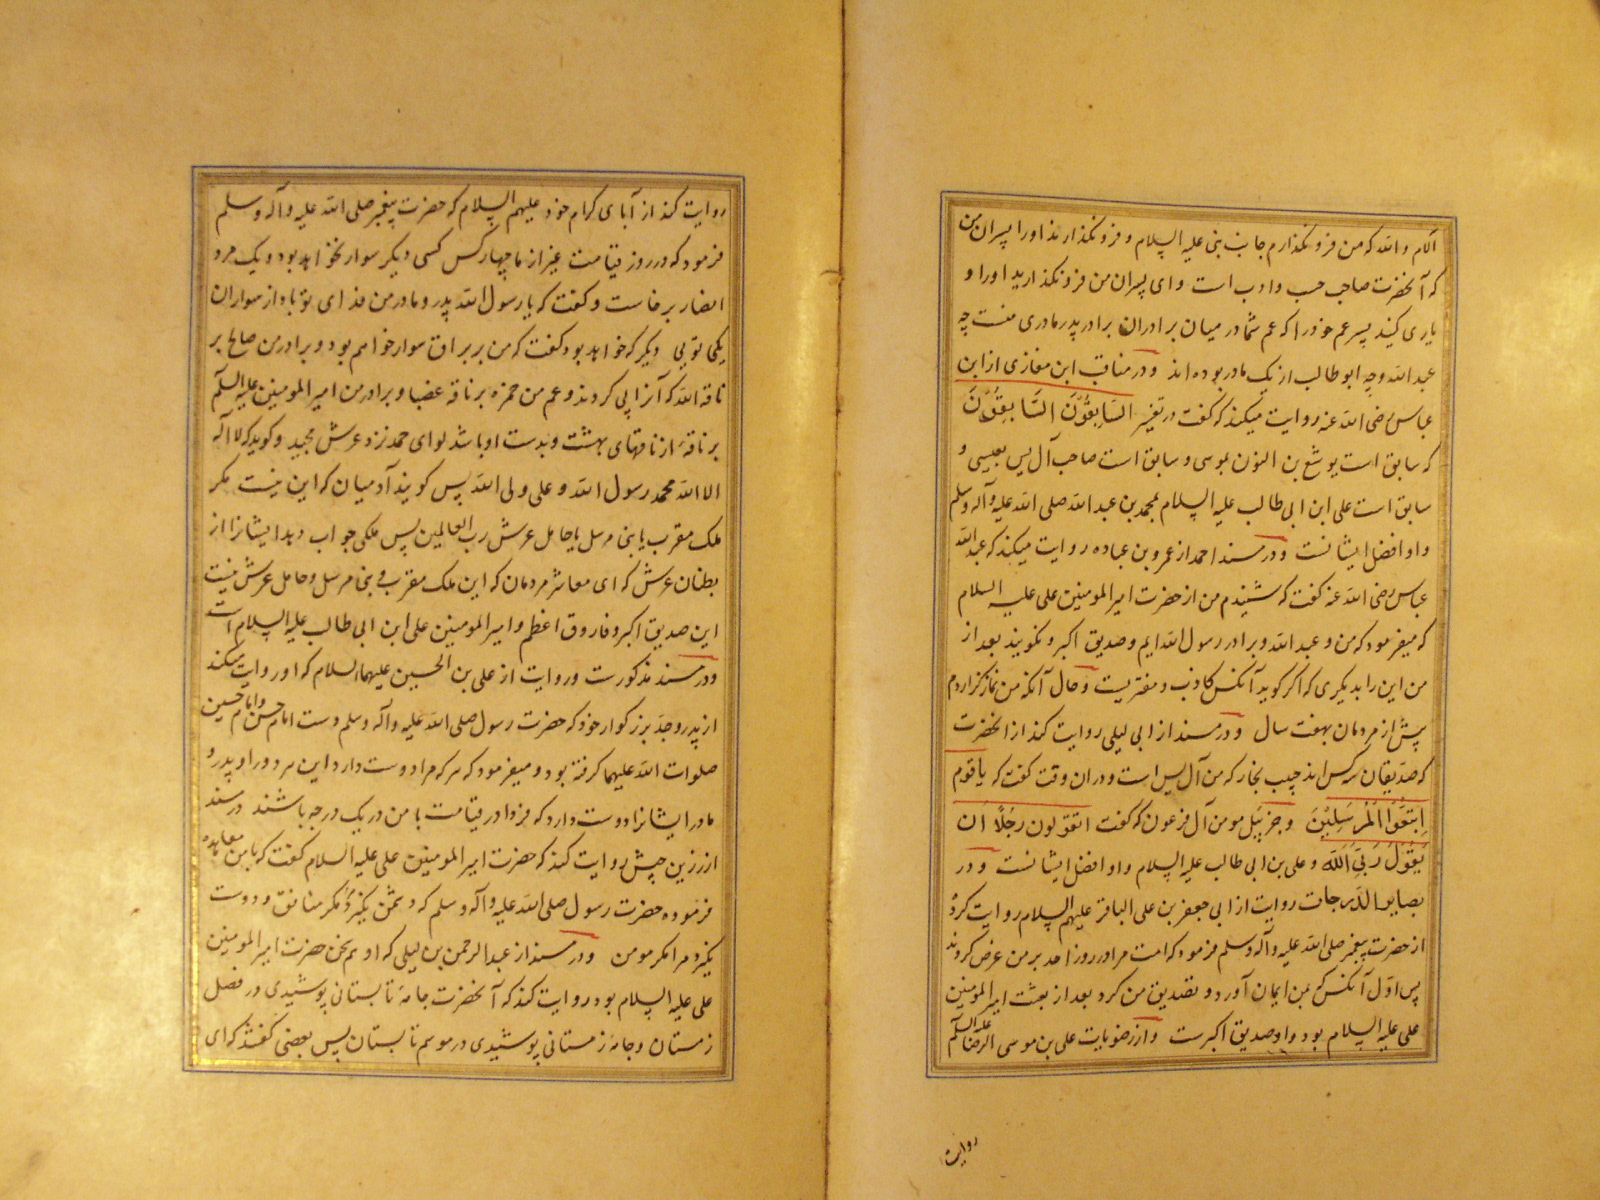 الام والله که من فرو نگذارم جانب نبی علیه السلام و فرو نگذارند او را پسران من
که آنحضرت صاحب حسب و ادب است و ای پسران من فرو نگذارید او را و
یاری کنید پسر عم خود را که عم شما در میان برادران برادر پدر مادری منست چه
عبد الله وجه ابو طالب از یک مادر بوده اند و در مناقب ابن مغازی از ابن
عباس رضی الله عنه روایت میکند که گفت در تفسیر السَابِقُوْنَ السَّابِقُوْنَ
که سابق است یوشع بن النون بموسی و سابق است صاحب آل یس بعیسی و
سابق است علی ابن ابی طالب علیه السلام بمحمد بن عبد الله صلی الله علیه و آله وسلم
و او افضل ایشانست و در مسند احمد از عمرو بن عباده روایت میکند که عبد الله
عباس رضی الله عنه گفت که شنیدم من از حضرت امیر المومنین علی علیه السلام
که میفرمود که من و عبد الله و برادر رسول الله ایم و صدیق اکبر و نگویند بعد از
من این را بدیگری که اگر گوید آنکس کاذب و مفتریست و حال آنکه من نماز گزاردم
پیش از مردمان بهفت سال و در مسند از ابی لیلی روایت کند از انحضرت
که صدیقان سه کس اند حبیب نجار که من آل یس است و دران وقت گفت که یا قوم
اِتبَعُوا المُرسَلِیْنَ و حزبیل مومن آل فرعون که گفت اتقتلون رجُلاً اَن
یَقُوْلَ رَبِّیَ اللهَ و علی بن ابی طالب علیه السلام و او افضل ایشانست و در
بصایر الدرجات روایت از ابی جعفر بن علی الباقر علیهم السلام روایت کرد
از حضرت پیغمبر صلی الله علیه و آله وسلم فرمود که امت مرا در روز احد بر من عرض کردند
پس اول آنکس که بمن ایمان آورد و تصدیق من کرد بعد از بعثت امیر المومنین
علی علیه السلام بود و او صدیق اکبرست و از رضویات علی بن موسی الرضا علیه السلم
روایت
روایت کند از آبای کرام خود علیهم السلام که حضرت پیغمبر صلی الله علیه و آله وسلم
فرمود که در روز قیامت غیر از ما چهار کس کسی دیگر سوار نخواهد بود و یک مرد
انصار برخاست و گفت که یا رسول الله پدر و مادر من فدای تو باد از سواران
یکی تویی دیگر که خواهد بود گفت که من بر براق سوار خواهم بود و برادر من صالح بر
ناقة الله که آنرا پی کردند و عم من حمزه بر ناقه عضبا و برادر من امیر المومنین علیه السلم
بر ناقۀ از ناقهای بهشت و بدست او باشد لوای حمد نزد عرش مجید و گوید که لا اله
الا الله محمد رسول الله و علی ولی الله پس گویند آدمیان که این نیست مگر
ملک مقرب یا نبی مرسل یا حامل عرش رب العالمین پس ملکی جواب دهد ایشانرا از
بطنان عرش که ای معاشر مردمان که این ملک مقرب و نبی مرسل و حامل عرش نیست
این صدیق اکبر و فاروق اعظم و امیر المومنین علی ابن ابی طالب علیه السلام است
و در مسند مذکورست و روایت از علی بن الحسین علیهما السلام که او روایت میکند
از پدر و جد بزرگوار خود که حضرت رسول صلی الله علیه و آله وسلم دست امام حسن و امام حسین
صلوات الله علیهما گرفته بود و میفرمود که هر که مرا دوست دارد این هر دو را و پدر و
مادر ایشانرا دوست دارد که فردا در قیامت با من در یک درجه باشند در مسند
از زرین حبیش روایت کند که حضرت امیر المومنین علی علیه السلام گفت که با من معاهده
فرموده حضرت رسول صلی الله علیه و آله وسلم که دشمن نگیرد مگر منافق و دوست
نگیرد مرا مگر مومن و در مسند از عبد الرحمن بن لیلی که او هم سخن حضرت امیر المومنین
علی علیه السلام بود روایت کند که آنحضرت جامۀ تابستانی پوشیدی در فصل
زمستان و جامۀ زمستانی پوشیدی در موسم تابستان پس بعضی گفتند که ای